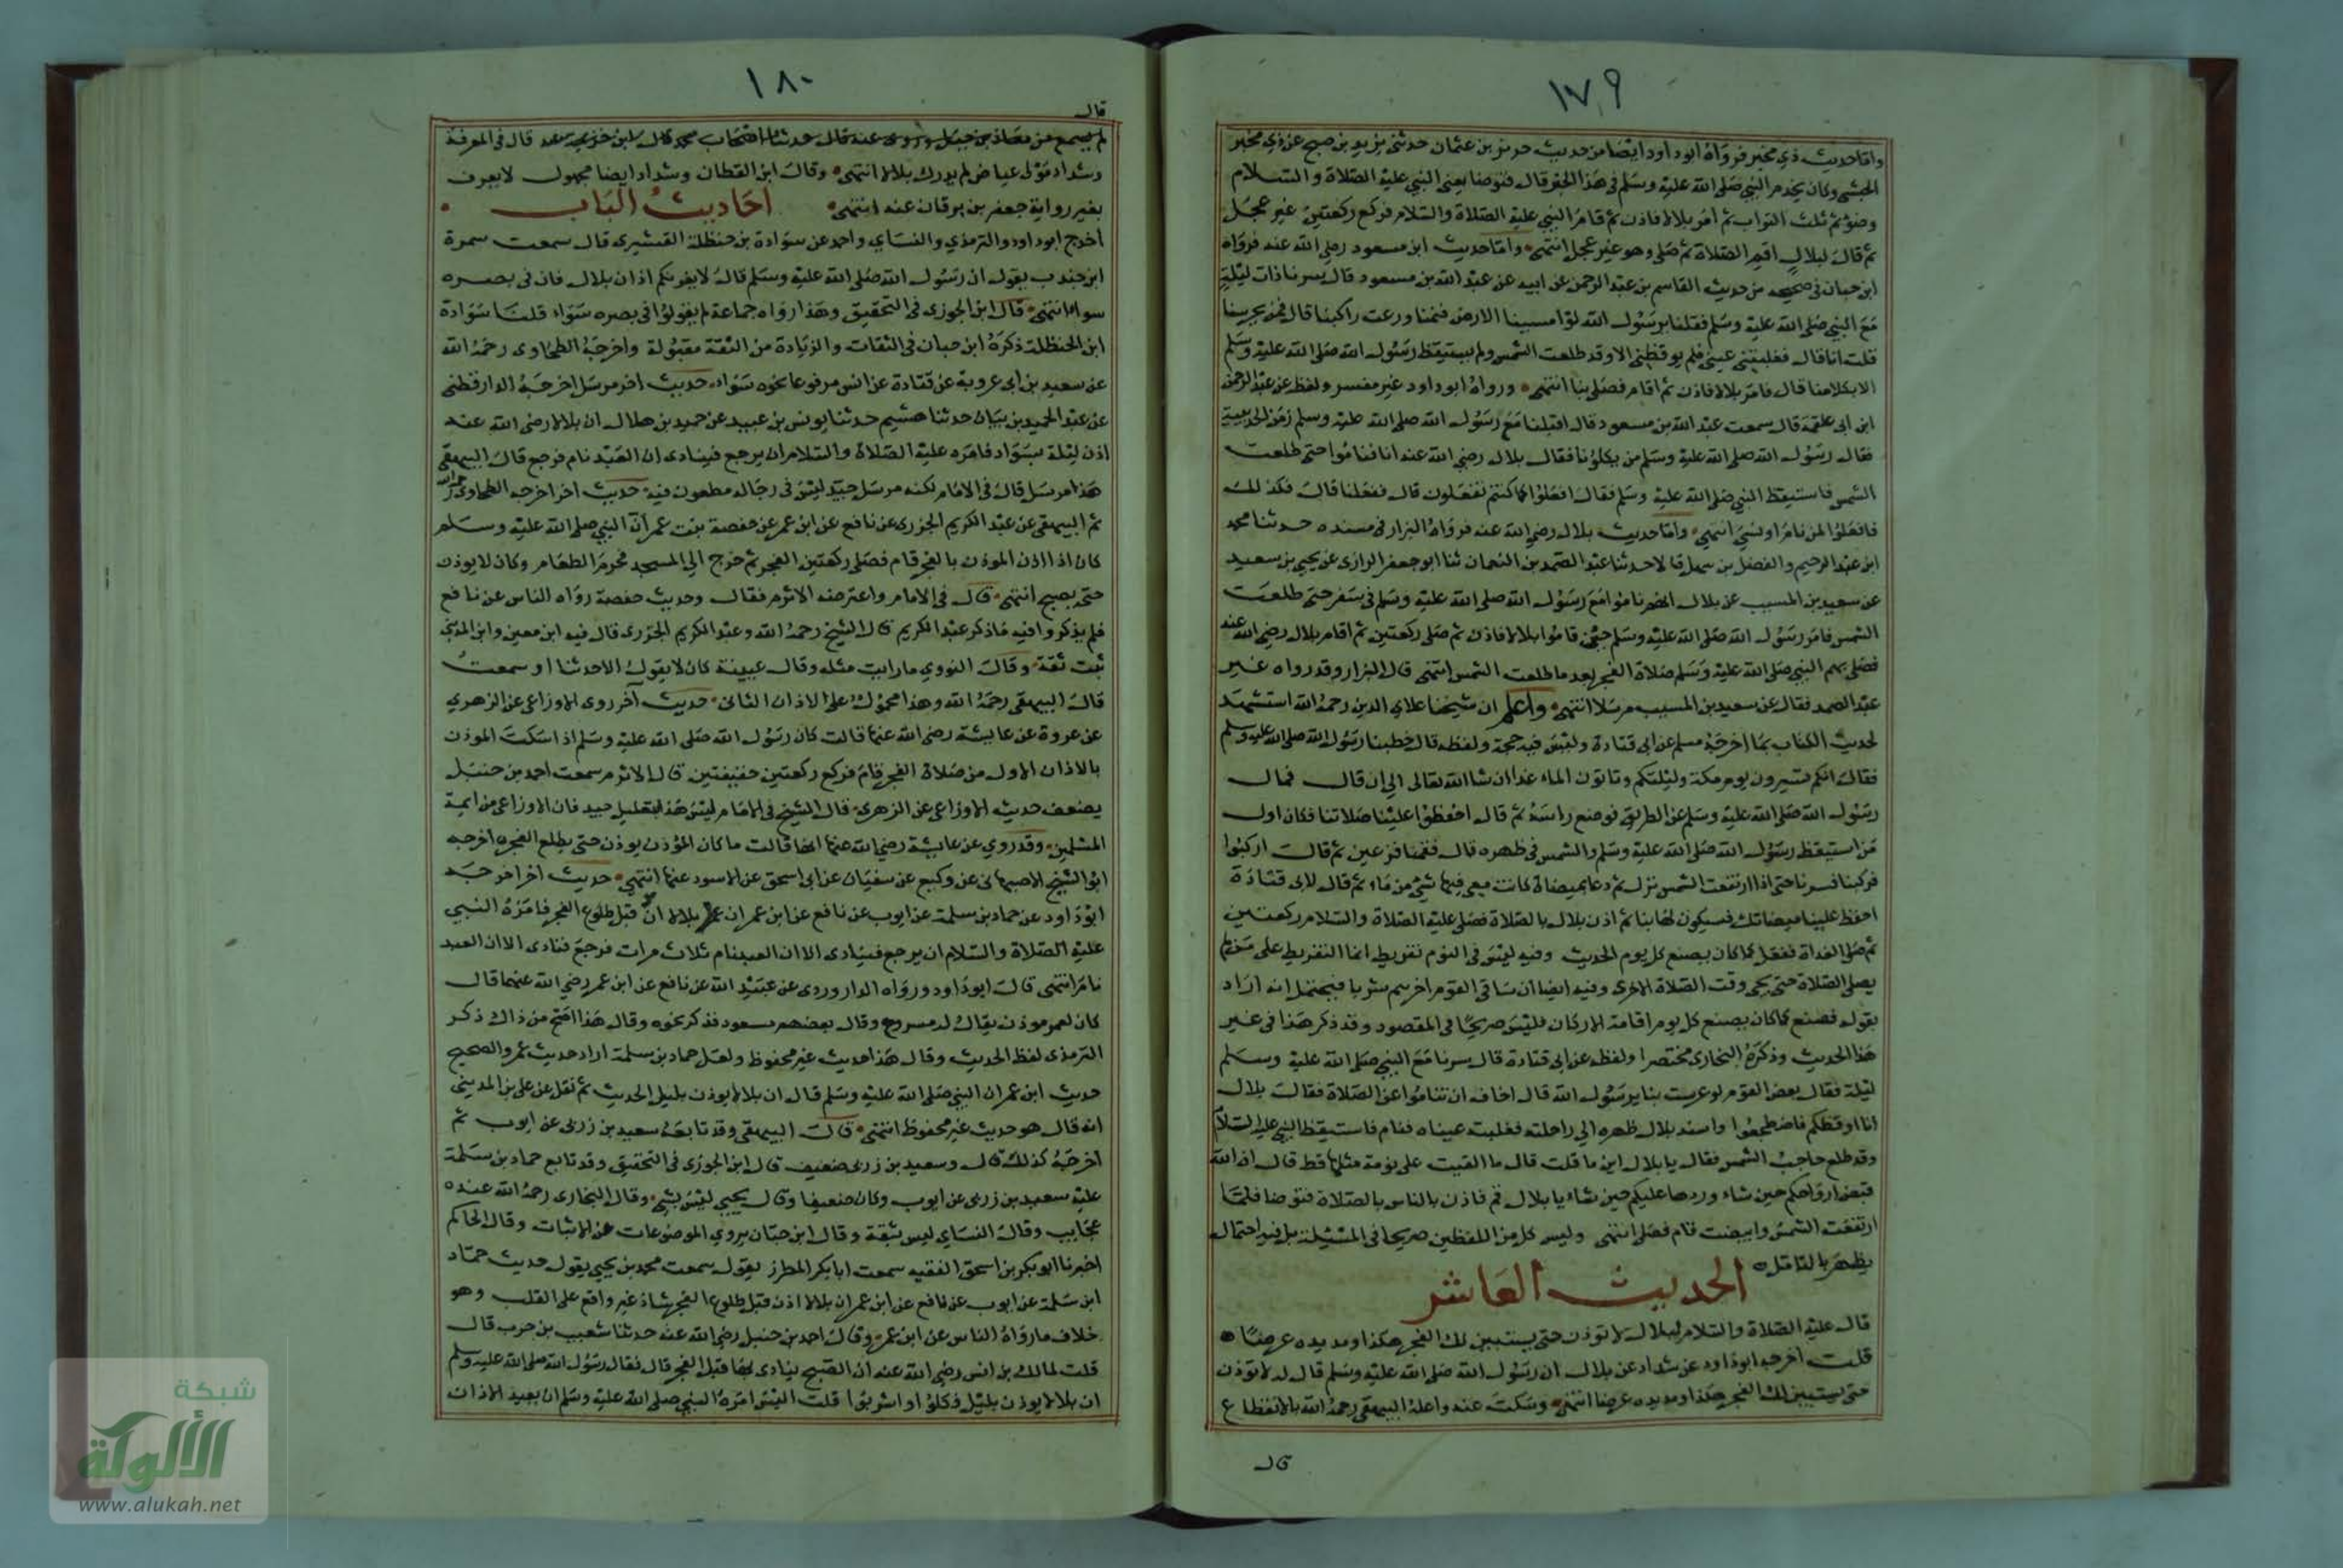 ١٧٩
واما حديث ذي مخبر فرواه ابو داود ايضا من حديث حريز بن عثمان حدثني يزيد بن صبح عن ذي مخبر
الحبشي وكان يخدم النبي صلى الله عليه وسلم في هذا الخبر قال فتوضا يعني النبي عليه الصلاة والسلام
وضوءا لم يلث التراب ثم امر بلالا فاذن ثم قام النبي عليه الصلاة والسلام فركع ركعتين غير عجل
ثم قال لبلال اقم الصلاة ثم صلى وهو غير عجل انتهى واما حديث ابن مسعود رضي الله عنه فرواه
ابن حبان في صحيحه من حديث القاسم بن عبد الرحمن عن ابيه عن عبد الله بن مسعود قال سرنا ذات ليلة
مع النبي صلى الله عليه وسلم فقلنا يرسول الله لو امسسنا الارض فنمنا ورعت راكبنا قال فمن يحرسنا
قلت انا قال فغلبتني عيني فلم يوقظني الا وقد طلعت الشمس ولم يستيقظ رسول الله صلى الله عليه وسلم
الا بكلامنا قال فامر بلالا فاذن ثم اقام فصلى بنا انتهى ورواه ابو داود غير مفسر ولفظه عن عبد الرحمن
ابن ابي علقمة قال سمعت عبد الله بن مسعود قال اقبلنا مع رسول الله صلى الله عليه وسلم زمن الحديبية
فقال رسول الله صلى الله عليه وسلم من يكلؤنا فقال بلال رضي الله عنه انا فناموا حتى طلعت
الشمس فاستيقظ النبي صلى الله عليه وسلم فقال افعلوا كما كنتم تفعلون قال ففعلنا قال فكذلك
فافعلوا لمن نام او نسي انتهى واما حديث بلال رضي الله عنه فرواه البزار في مسنده حدثنا محمد
ابن عبد الرحيم والفضل بن سهل قالا حدثنا عبد الصمد بن النعمان ثنا ابو جعفر الرازي عن يحيى بن سعيد
عن سعيد بن المسيب عن بلال انهم ناموا مع رسول الله صلى الله عليه وسلم في سفر حتى طلعت
الشمس فامر رسول الله صلى الله عليه وسلم حين قاموا بلالا فاذن ثم صلى ركعتين ثم اقام بلال رضي الله عنه
فصلى بهم النبي صلى الله عليه وسلم صلاة الفجر بعد ما طلعت الشمس انتهى قال البزار وقد رواه غير
عبد الصمد فقال عن سعيد بن المسيب مرسلا انتهى واعلم ان شيخنا علاي الدين رحمه الله استشهد
لحديث الكتاب بما اخرجه مسلم عن ابي قتادة وليس فيه حجة ولفظه قال خطبنا رسول الله صلى الله عليه وسلم
فقال انكم تسيرون يومكم وليلتكم وتاتون الماء غدا ان شا الله تعالى الى ان قال فمال
رسول الله صلى الله عليه وسلم عن الطريق فوضع راسه ثم قال احفظوا علينا صلاتنا فكان اول
من استيقظ رسول الله صلى الله عليه وسلم والشمس في ظهره قال فقمنا فزعين ثم قال اركبوا
فركبنا فسرنا حتى اذا ارتفعت الشمس نزل ثم دعا بميضاة كانت معي فيها شيء من ماء ثم قال لابي قتادة
احفظ علينا ميضاتك فسيكون لها نبا ثم اذن بلال بالصلاة فصلى عليه الصلاة والسلام ركعتين
ثم صلى الغداة ففعل كما كان يصنع كل يوم الحديث وفيه ليس في النوم تفريط انما التفريط على من لم
يصل الصلاة حتى يجي وقت الصلاة الاخرى وفيه ايضا ان ساقي القوم اخرهم شربا فيحتمل انه اراد
بقوله فصنع كما كان يصنع كل يوم اقامة الاركان فليس صريحا في المقصود وقد ذكر هذا في غير
هذا الحديث وذكره البخاري مختصرا ولفظه عن ابي قتادة قال سرنا مع النبي صلى الله عليه وسلم
ليلة فقال بعض القوم لو عرست بنا يرسول الله قال اخاف ان تناموا عن الصلاة فقال بلال
انا اوقظكم فاضطجعوا واسند بلال ظهره الى راحلته فغلبته عيناه فنام فاستيقظ النبي عليه السلام
وقد طلع حاجب الشمس فقال يا بلال اين ما قلت قال ما القيت على نومة مثلها قط قال ان الله
قبض ارواحكم حين شاء وردها عليكم حين شاء يا بلال قم فاذن بالناس بالصلاة فتوضا فلما
ارتفعت الشمس وابيضت قام فصلى انتهى وليس كل من اللفظين صريحا في المسئلة بل فيه احتمال
يظهر بالتامل
الحديث العاشر
قال عليه الصلاة والسلام لبلال لا توذن حتى يستبين لك الفجر هكذا ومد يده عرضا
قلت اخرجه ابو داود عن شداد عن بلال ان رسول الله صلى الله عليه وسلم قال له لا توذن
حتى يستبين لك الفجر هكذا ومد يده عرضا انتهى وسكت عنه واعله البيهقي رحمه الله بالانقطاع
قال
١٨٠
قال
لم يسمع من معاذ بن جبل قال في المعرفة
وشداد مولى عياض لم يدرك بلالا انتهى وقال ابن القطان وشداد ايضا مجهول لا يعرف
بغير رواية جعفر بن برقان عنه انتهى احاديث الباب
اخرج ابو داود والترمذي والنساي واحمد عن سوادة بن حنظلة القشيري قال سمعت سمرة
ابن جندب يقول ان رسول الله صلى الله عليه وسلم قال لا يغرنكم اذان بلال فان في بصره
سواء انتهى قال ابن الجوزي في التحقيق وهذا رواه جماعة لم يقولوا في بصره سواء قلنا سوادة
ابن الحنظلة ذكره ابن حبان في الثقات والزيادة من الثقة مقبولة واخرجه الطحاوي رحمه الله
عن سعيد بن ابي عروبة عن قتادة عن انس مرفوعا نحوه سواء حديث اخر مرسل اخرجه الدارقطني
عن عبد الحميد بن بيان حدثنا هشيم حدثنا يونس بن عبيد عن حميد بن هلال ان بلالا رضي الله عنه
اذن ليلة بسواد فامره عليه الصلاة والسلام ان يرجع فينادي ان العبد نام فرجع قال البيهقي
هذا مرسل قال في الامام لكنه مرسل جيد ليس في رجاله مطعون فيه حديث اخر اخرجه الطحاوي رحمه الله
ثم البيهقي عن عبد الكريم الجزري عن نافع عن ابن عمر عن حفصة بنت عمر ان النبي صلى الله عليه وسلم
كان اذا اذن الموذن بالفجر قام فصلى ركعتين الفجر ثم خرج الي المسجد محرم الطعام وكان لا يوذن
حتى يصبح انتهى قال في الامام واعترضه الاثرم فقال وحديث حفصة رواه الناس عن نافع
فلم يذكروا فيه ماذكر عبد الكريم قال الشيخ رحمه الله وعبد الكريم الجزري قال فيه ابن معين وابن المديني
ثبت ثقة وقال النووي ما رايت مثله وقال عيينة كان لا يقول الا حدثنا او سمعت
قال البيهقي رحمه الله وهذا محمول على الاذان الثاني حديث آخر روى الاوزاعي عن الزهري
عن عروة عن عايشة رضي الله عنها قالت كان رسول الله صلى الله عليه وسلم اذا سكت الموذن
بالاذان الاول من صلاة الفجر قام فركع ركعتين خفيفتين قال الاثرم سمعت احمد بن حنبل
يضعف حديث الاوزاعي عن الزهري قال الشيخ في الامام ليس هذا التعليل جيد فان الاوزاعي من ايمة
المسلمين وقد روي عن عايشة رضي الله عنها انها قالت ما كان المؤذن يوذن حتى يطلع الفجر اخرجه
ابو الشيخ الاصبهاني عن وكيع عن سفيان عن ابي اسحق عن الاسود عنها انتهى حديث اخر اخرجه
ابو داود عن حماد بن سلمة عن ايوب عن نافع عن ابن عمر ان بلالا اذن قبل طلوع الفجر فامره النبي
عليه الصلاة والسلام ان يرجع فينادي الا ان العبد نام ثلاث مرات فرجع فنادى الا ان العبد
نام انتهى قال ابو داود ورواه الداروردي عن عبيد الله عن نافع عن ابن عمر رضي الله عنهما قال
كان لعمر موذن يقال له مسروح وقال بعضهم مسعود فذكر نحوه وقال هذا اصح من ذاك ذكر
الترمذي لفظ الحديث وقال هذا حديث غير محفوظ ولعل حماد بن سلمة اراد حديث عمر والصحيح
حديث ابن عمر ان النبي صلى الله عليه وسلم قال ان بلالا يوذن بليل الحديث ثم نقل عن علي بن المديني
انه قال هو حديث غير محفوظ انتهى قال البيهقي وقد تابعه سعيد بن زربي عن ايوب ثم
اخرجه كذلك قال وسعيد بن زربي ضعيف قال ابن الجوزي في التحقيق وقد تابع حماد بن سلمة
عليه سعيد بن زربي عن ايوب وكان ضعيفا وقال يحيى ليس بشيء وقال البخاري رحمه الله عنده
عجايب وقال النساي ليس بثقة وقال ابن حبان يروي الموضوعات عن الاثبات وقال الحاكم
اخبرنا ابو بكر بن اسحق الفقيه سمعت ابا بكر المطرز يقول سمعت محمد بن يحيى يقول حديث حماد
ابن سلمة عن ايوب عن نافع عن ابن عمر ان بلالا اذن قبل طلوع الفجر شاذ غير واقع على القلب وهو
خلاف ما رواه الناس عن ابن عمر وقال احمد بن حنبل رضي الله عنه حدثنا شعيب بن حرب قال
قلت لمالك بن انس رضي الله عنه ان الصبح ينادى لها قبل الفجر قال فقال رسول الله صلى الله عليه وسلم
ان بلالا يوذن بليل فكلوا واشربوا قلت اليس امره النبي صلى الله عليه وسلم ان يعيد الاذان
شبكة
الألوكة
www.alukah.net